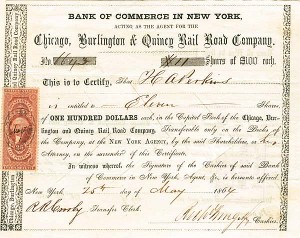 BANK OF COMMERCE IN NEW YORK,
ACTING AS THE AGENT FOR THE
Chicago, Burlington & Quincy Rail Road Company.
No. Shares of $100 each.
This is to Certify, That
is entitled to Eleven Shares
of ONE HUNDRED DOLLARS each, in the Capital Stock of the Chicago, Burlington
and Quincy Rail Road Company. Transferable only on the Books of
the Company, at the NEW YORK AGENCY, by the said Shareholder, or
Attorney, on the surrender of this Certificate.
In witness whereof, the Signature of the Cashier of said Bank
of Commerce in New York, Agent, &c, is hereunto affixed.
New York 25th day of May 1864
Transfer Clerk. Cashier.